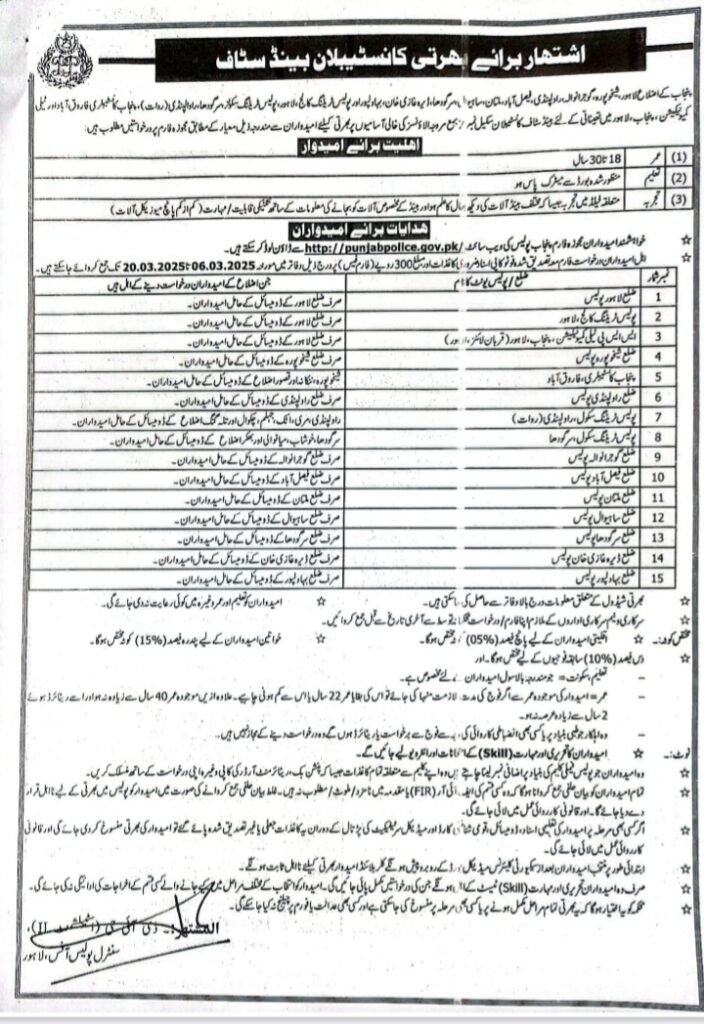 اشتہار برائے بھرتی کانسٹیبلان بینڈ سٹاف
پنجاب کے اضلاع لاہور، شیخوپورہ، گوجرانوالہ، راولپنڈی، فیصل آباد، ملتان، ساہیوال، سرگودھا، ڈیرہ غازی خان، بہاولپور اور پولیس ٹریننگ کالج، لاہور، پولیس ٹریننگ سکولز سرگودھا، راولپنڈی (روات)، پنجاب کانسٹیبلری فاروق آباد اور ٹیلی
کمیونیکیشن، پنجاب، لاہور میں تعیناتی کے لئے بینڈ سٹاف کانسٹیبلان سکیل نمبر جمع مروجہ الاؤنسز کی خالی آسامیوں پر بھرتی کیلئے امیدواران سے مندرجہ ذیل معیار کے مطابق مجوزہ فارم پر درخواستیں مطلوب ہیں:
اہلیت برائے امیدوار
(1) عمر 18 تا 30 سال
(2) تعلیم منظور شدہ بورڈ سے میٹرک پاس ہو
(3) تجربہ متعلقہ فیلڈ میں تجربہ جیسا کہ مختلف بینڈ آلات کی دیکھ بھال کا علم ہو اور بینڈ کے مخصوص آلات کو بجانے کی معلومات کے ساتھ تکنیکی قابلیت/مہارت (کم از کم پانچ میوزیکل آلات)
ہدایات برائے امیدواران
☆ خواہشمند امیدواران مجوزہ فارم پنجاب پولیس کی ویب سائٹ http://punjabpolice.gov.pk/ سے ڈاؤن لوڈ کر سکتے ہیں۔
☆ اہل امیدواران درخواست فارم معہ تصدیق شدہ فوٹو کاپی اسناد ضروری کاغذات اور مبلغ 300 روپے (فارم فیس) پر درج ذیل دفاتر میں مورخہ 06.03.2025 تا 20.03.2025 تک جمع کروائے جا سکتے ہیں۔
نمبر شمار ضلع/پولیس یونٹ کا نام جن اضلاع کے امیدواران درخواست دینے کے اہل ہیں
1 ضلع لاہور پولیس صرف ضلع لاہور کے ڈومیسائل کے حامل امیدواران۔
2 پولیس ٹریننگ کالج، لاہور صرف ضلع لاہور کے ڈومیسائل کے حامل امیدواران۔
3 ایس ایس پی ٹیلی کمیونیکیشن، پنجاب، لاہور (قربان لائنز، لاہور) صرف ضلع لاہور کے ڈومیسائل کے حامل امیدواران۔
4 ضلع شیخوپورہ پولیس صرف ضلع شیخوپورہ کے ڈومیسائل کے حامل امیدواران۔
5 پنجاب کانسٹیبلری، فاروق آباد شیخوپورہ، ننکانہ اور قصور اضلاع کے ڈومیسائل کے حامل امیدواران۔
6 ضلع راولپنڈی پولیس صرف ضلع راولپنڈی کے ڈومیسائل کے حامل امیدواران۔
7 پولیس ٹریننگ سکول، راولپنڈی (روات) راولپنڈی، مری، اٹک، جہلم، چکوال اور تلہ گنگ اضلاع کے ڈومیسائل کے حامل امیدواران۔
8 پولیس ٹریننگ سکول، سرگودھا سرگودھا، خوشاب، میانوالی اور بھکر اضلاع کے ڈومیسائل کے حامل امیدواران۔
9 ضلع گوجرانوالہ پولیس صرف ضلع گوجرانوالہ کے ڈومیسائل کے حامل امیدواران۔
10 ضلع فیصل آباد پولیس صرف ضلع فیصل آباد کے ڈومیسائل کے حامل امیدواران۔
11 ضلع ملتان پولیس صرف ضلع ملتان کے ڈومیسائل کے حامل امیدواران۔
12 ضلع ساہیوال پولیس صرف ضلع ساہیوال کے ڈومیسائل کے حامل امیدواران۔
13 ضلع سرگودھا پولیس صرف ضلع سرگودھا کے ڈومیسائل کے حامل امیدواران۔
14 ضلع ڈیرہ غازی خان پولیس صرف ضلع ڈیرہ غازی خان کے ڈومیسائل کے حامل امیدواران۔
15 ضلع بہاولپور پولیس صرف ضلع بہاولپور کے ڈومیسائل کے حامل امیدواران۔
☆ بھرتی شیڈول کے متعلق معلومات درج بالا دفاتر سے حاصل کی جا سکتی ہیں۔ ☆ امیدواران کو تعلیم اور عمر وغیرہ میں کوئی رعایت نہ دی جائے گی۔
☆ سرکاری و نیم سرکاری اداروں کے ملازم اپنا فارم/درخواست محکمانہ توسط سے آخری تاریخ سے قبل جمع کروائیں۔
مختص کوٹہ:- ☆ اقلیتی امیدواران کے لیے پانچ فیصد (05%) کوٹہ مختص ہوگا۔ ☆ خواتین امیدواران کے لیے پندرہ فیصد (15%) کوٹہ مختص ہوگا۔
☆ دس فیصد (10%) سابقہ فوجیوں کے لیے مختص ہوگا۔ اور
– تعلیم، سکونت = جو مندرجہ بالا سول امیدواران کے لئے مخصوص ہے۔
– عمر = امیدوار کی موجودہ عمر سے اگر فوج کی مدت ملازمت منہا کی جائے تو اس کی بقایا عمر 22 سال یا اس سے کم ہونی چاہیے۔ علاوہ ازیں موجودہ عمر 40 سال سے زیادہ نہ ہو اور اسے ریٹائرڈ ہوئے
2 سال سے زیادہ عرصہ نہ ہو۔
– وہ اہلکار جو طبی بنیاد پر یا کسی بھی انضباطی کاروائی کی وجہ سے فوج سے برخواست یا ریٹائرڈ ہوں گے وہ درخواست دینے کے مجاز نہیں ہیں۔
نوٹ:- ☆ امیدواران کا تحریری اور مہارت (Skill) کے امتحانات اور انٹرویو لیے جائیں گے۔
☆ وہ امیدواران جو پولیس فیملی کلیم کی بنیاد پر اضافی نمبر لینا چاہتے ہیں وہ اپنے کلیم سے متعلقہ تمام کاغذات جیسا کہ پنشن بک، ریٹائرمنٹ آرڈر کی کاپی وغیرہ اپنی درخواست کے ساتھ منسلک کریں۔
☆ تمام امیدواران کو بیان حلفی جمع کروانا ہوگا کہ وہ کسی قسم کی ایف آئی آر (FIR) یا مقدمہ میں نامزد/ملوث/مطلوب نہ ہیں۔ غلط بیان حلفی جمع کروانے کی صورت میں امیدوار کو پولیس میں بھرتی کے لیے نااہل قرار
دے دیا جائے گا۔ اور قانونی کارروائی عمل میں لائی جائے گی۔
☆ اگر کسی بھی مرحلہ پر امیدوار کی تعلیمی اسناد، ڈومیسائل، قومی شناختی کارڈ اور میڈیکل سرٹیفکیٹ کی پڑتال کے دوران یہ کاغذات جعلی یا غیر تصدیق شدہ پائے گئے تو امیدوار کی بھرتی منسوخ کر دی جائے گی اور قانونی
کارروائی عمل میں لائی جائے گی۔
☆ ابتدائی طور پر منتخب امیدواران بعد از سکیورٹی کلیئرنس میڈیکل بورڈ کے روبرو پیش ہونگے کلر بلائنڈ امیدوار بھرتی کیلئے نااہل ثابت ہونگے۔
☆ صرف وہ امیدواران تحریری اور مہارت (Skill) ٹیسٹ کے اہل ہونگے جن کی درخواستیں مکمل پائی جائیں گی۔ امیدوار کو انتخاب کے مختلف مراحل میں کیے جانے والے کسی قسم کے اخراجات کی ادائیگی نہ کی جائے گی۔
☆ محکمہ کو یہ اختیار ہوگا کہ یہ بھرتی تمام مراحل مکمل ہونے پر یا کسی بھی مرحلہ پر منسوخ کی جا سکتی ہے اور کسی بھی عدالت یا فورم پر چیلنج نہ کیا جا سکے گی۔
المشتہر:- ڈی آئی جی (اسٹیبلشمنٹ-II)،
سنٹرل پولیس آفس، لاہور